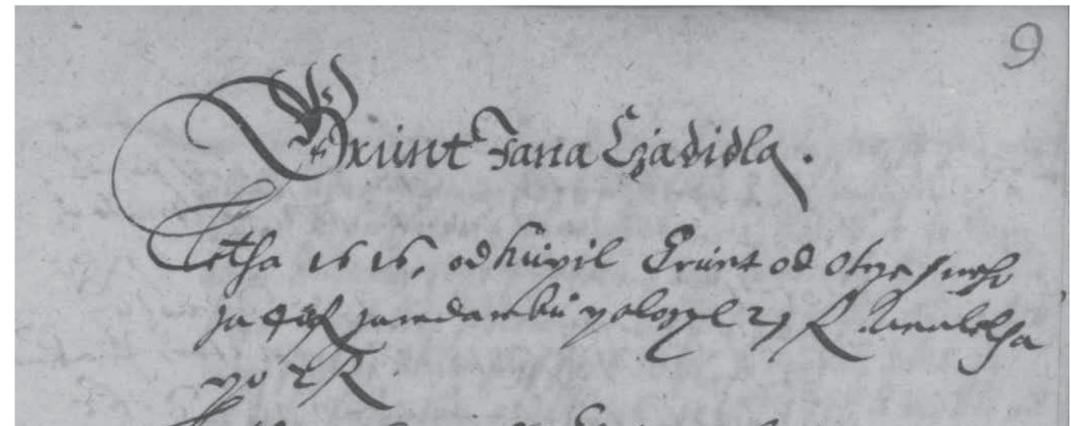 9
Grunt Jana Czadidla.
Letha 1616, odkúpil Grunt od Otcze sweho
za zawdawku położyl 29 R. Na letha
po 2 R